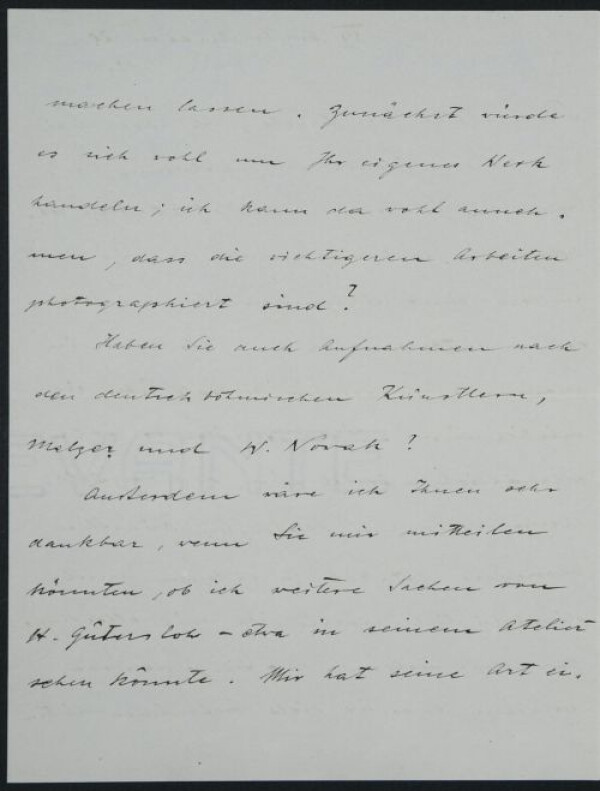 machen lassen. Zunächst würde
es sich wohl um Ihr eigenes Werk
handeln; ich kann da wohl anneh-
men, dass die wichtigeren Arbeiten
photographiert sind?
Haben Sie auch Aufnahmen nach
den deutschböhmischen Künstlern,
Melzer und W. Novak?
Ausserdem wäre ich Ihnen sehr
dankbar, wenn Sie mir mitteilen
könnten, ob ich weitere Sachen von
H. Gütersloh – etwa in seinem Atelier
sehen könnte. Mir hat seine Art ei-